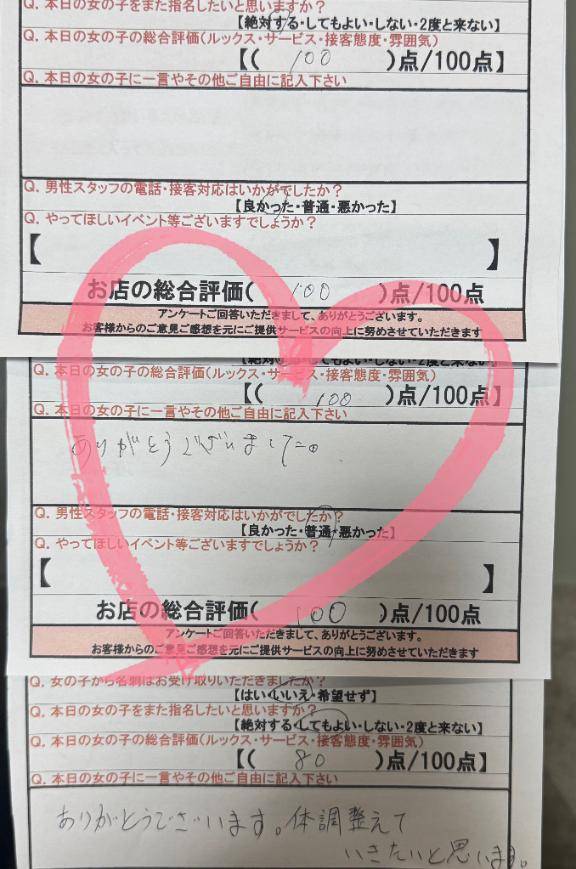 Q. 本日の女の子をまた指名したいと思いますか?
【絶対する・してもよい・しない・2度と来ない】
Q. 本日の女の子の総合評価(ルックス・サービス・接客態度・雰囲気)
【( 100 )点/100点】
Q. 本日の女の子に一言やその他ご自由に記入下さい
Q. 男性スタッフの電話・接客対応はいかがでしたか?
【良かった・普通・悪かった】
Q. やってほしいイベント等ございますでしょうか?
【 】
お店の総合評価( 100 )点/100点
アンケートご回答いただきまして、ありがとうございます。
お客様からのご意見ご感想を元にご提供サービスの向上に努めさせていただきます
【絶対する・してもよい・しない・2度と来ない】
Q. 本日の女の子の総合評価(ルックス・サービス・接客態度・雰囲気)
【( 100 )点/100点】
Q. 本日の女の子に一言やその他ご自由に記入下さい
ありがとうございました。
Q. 男性スタッフの電話・接客対応はいかがでしたか?
【良かった・普通・悪かった】
Q. やってほしいイベント等ございますでしょうか?
【 】
お店の総合評価( 100 )点/100点
アンケートご回答いただきまして、ありがとうございます。
お客様からのご意見ご感想を元にご提供サービスの向上に努めさせていただきます
Q. 女の子から名刺はお受け取りいただきましたか?
【はい・いいえ・希望せず】
Q. 本日の女の子をまた指名したいと思いますか?
【絶対する・してもよい・しない・2度と来ない】
Q. 本日の女の子の総合評価(ルックス・サービス・接客態度・雰囲気)
【( 80 )点/100点】
Q. 本日の女の子に一言やその他ご自由に記入下さい
ありがとうございます。体調整えて
いきたいと思います。